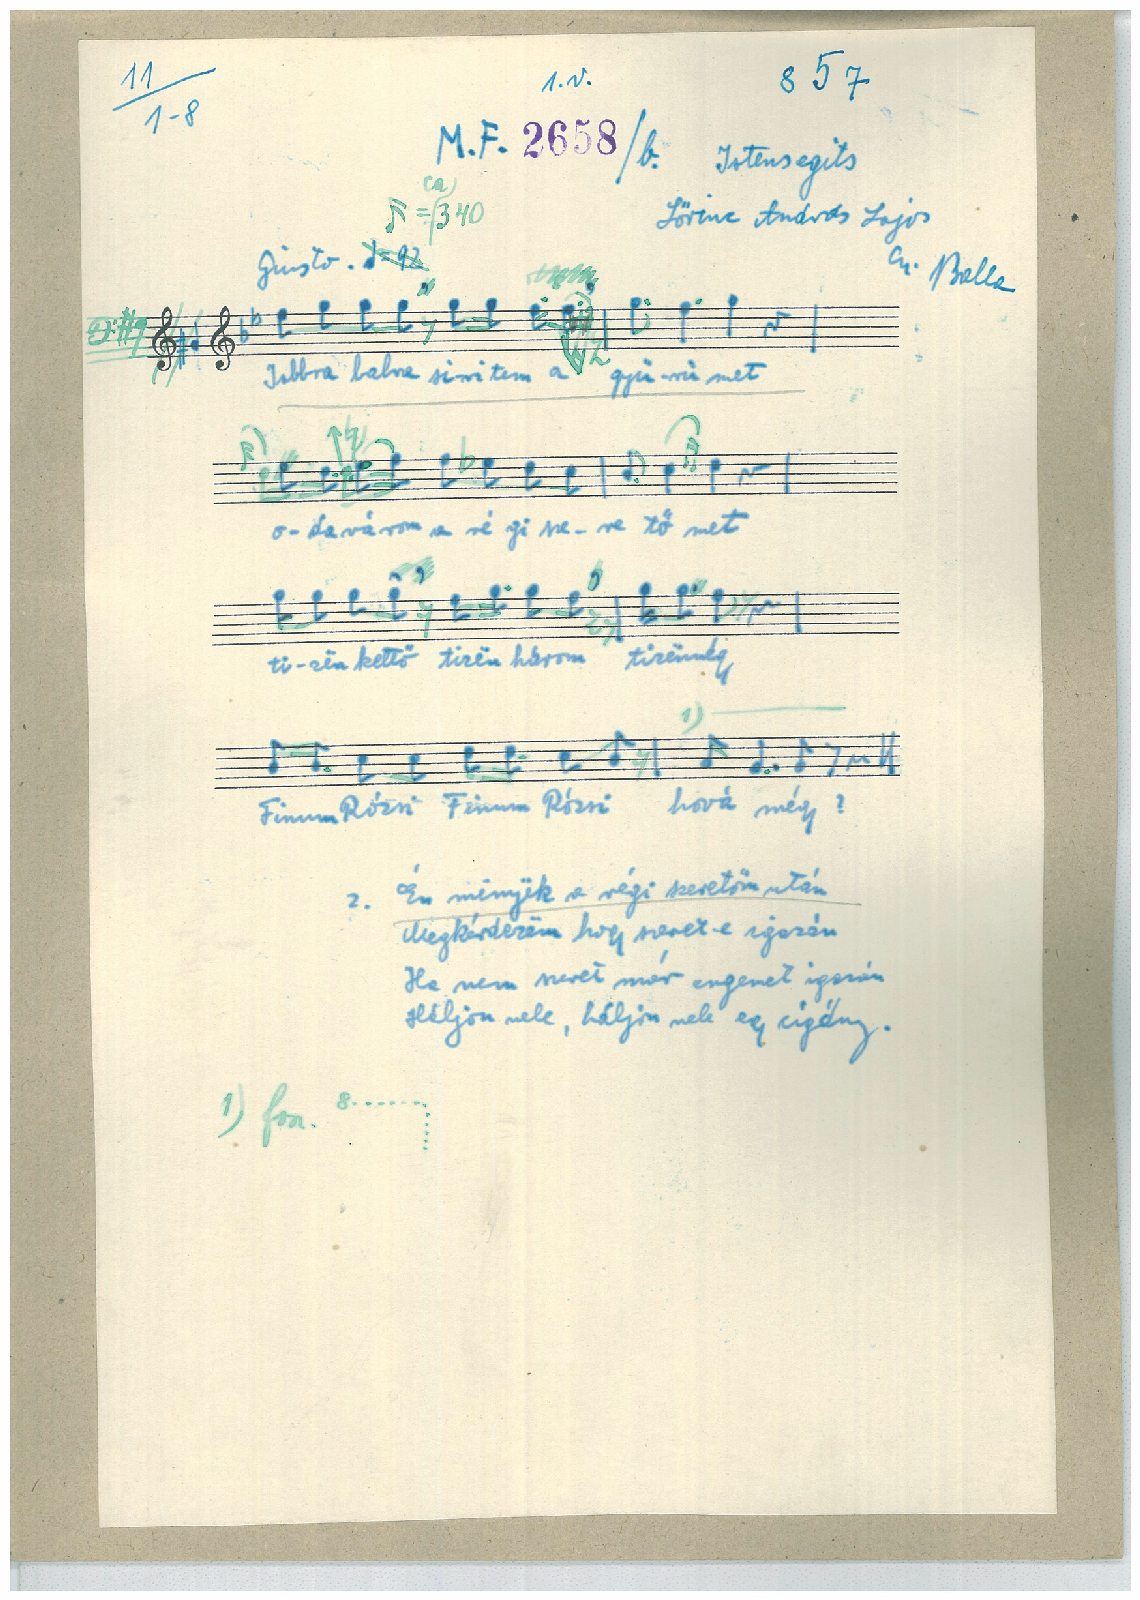 11
1-8
1.v.
857
M.F. 2658/b.
Istensegits
Lőrinc András Lajos
Gy. Balla
ca
=340
Giusto. =92
Jobbra balra si-ri tem a gyü-rü met
o-da várom a ré gi sze-re tő met
ti-zën kettő tizën három tizënnégy
1)
Finum Rózsi Finum Rózsi hová még ?
2. Én mënnyëk a régi szeretőm után
Megkérdezëm hogy szeret-e igazán
Ha nem szeret már engemet igazán
Háljon vele, háljon vele egy cigány.
1) fon. 8